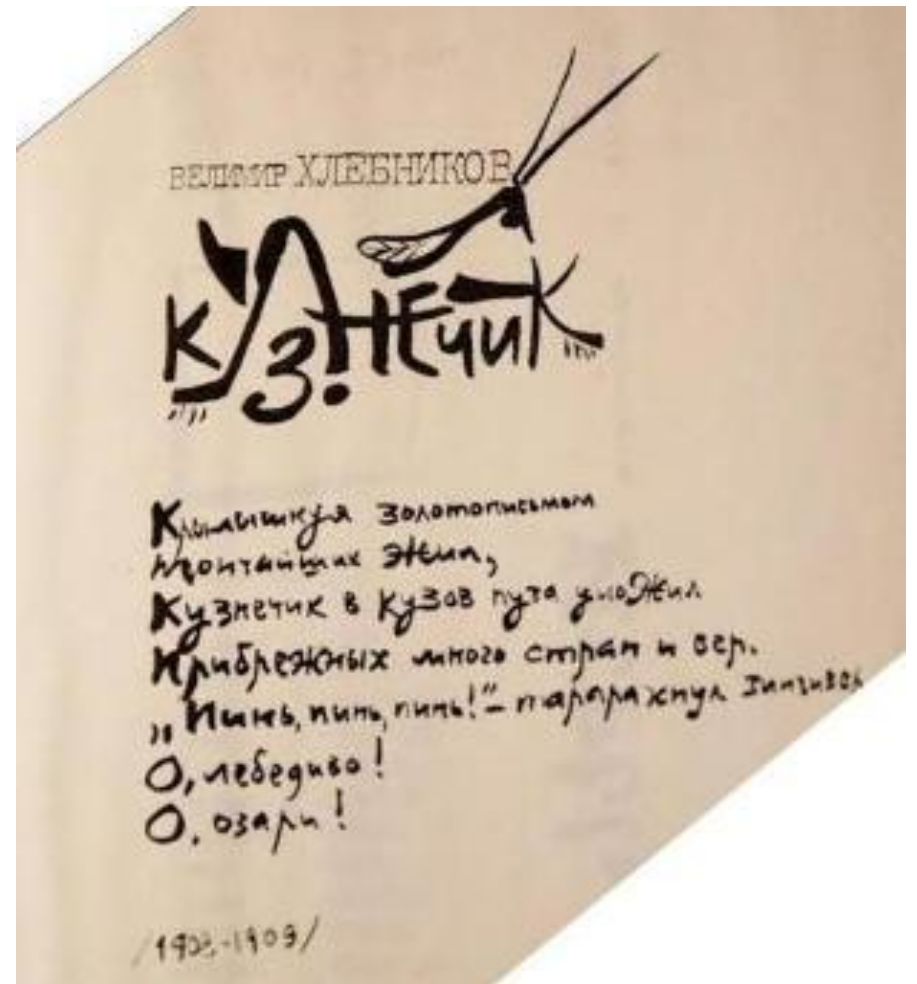 ВЕЛИМИР ХЛЕБНИКОВ
КУЗНЕЧИК
Крылышкуя золотописьмом
тончайших жил,
Кузнечик в кузов пуза уложил
Прибрежных много стран и вер.
„Пинь, пинь, пинь!“ – тарарахнул Зинзивер
О, лебедиво!
О, озари!
/1908-1909/